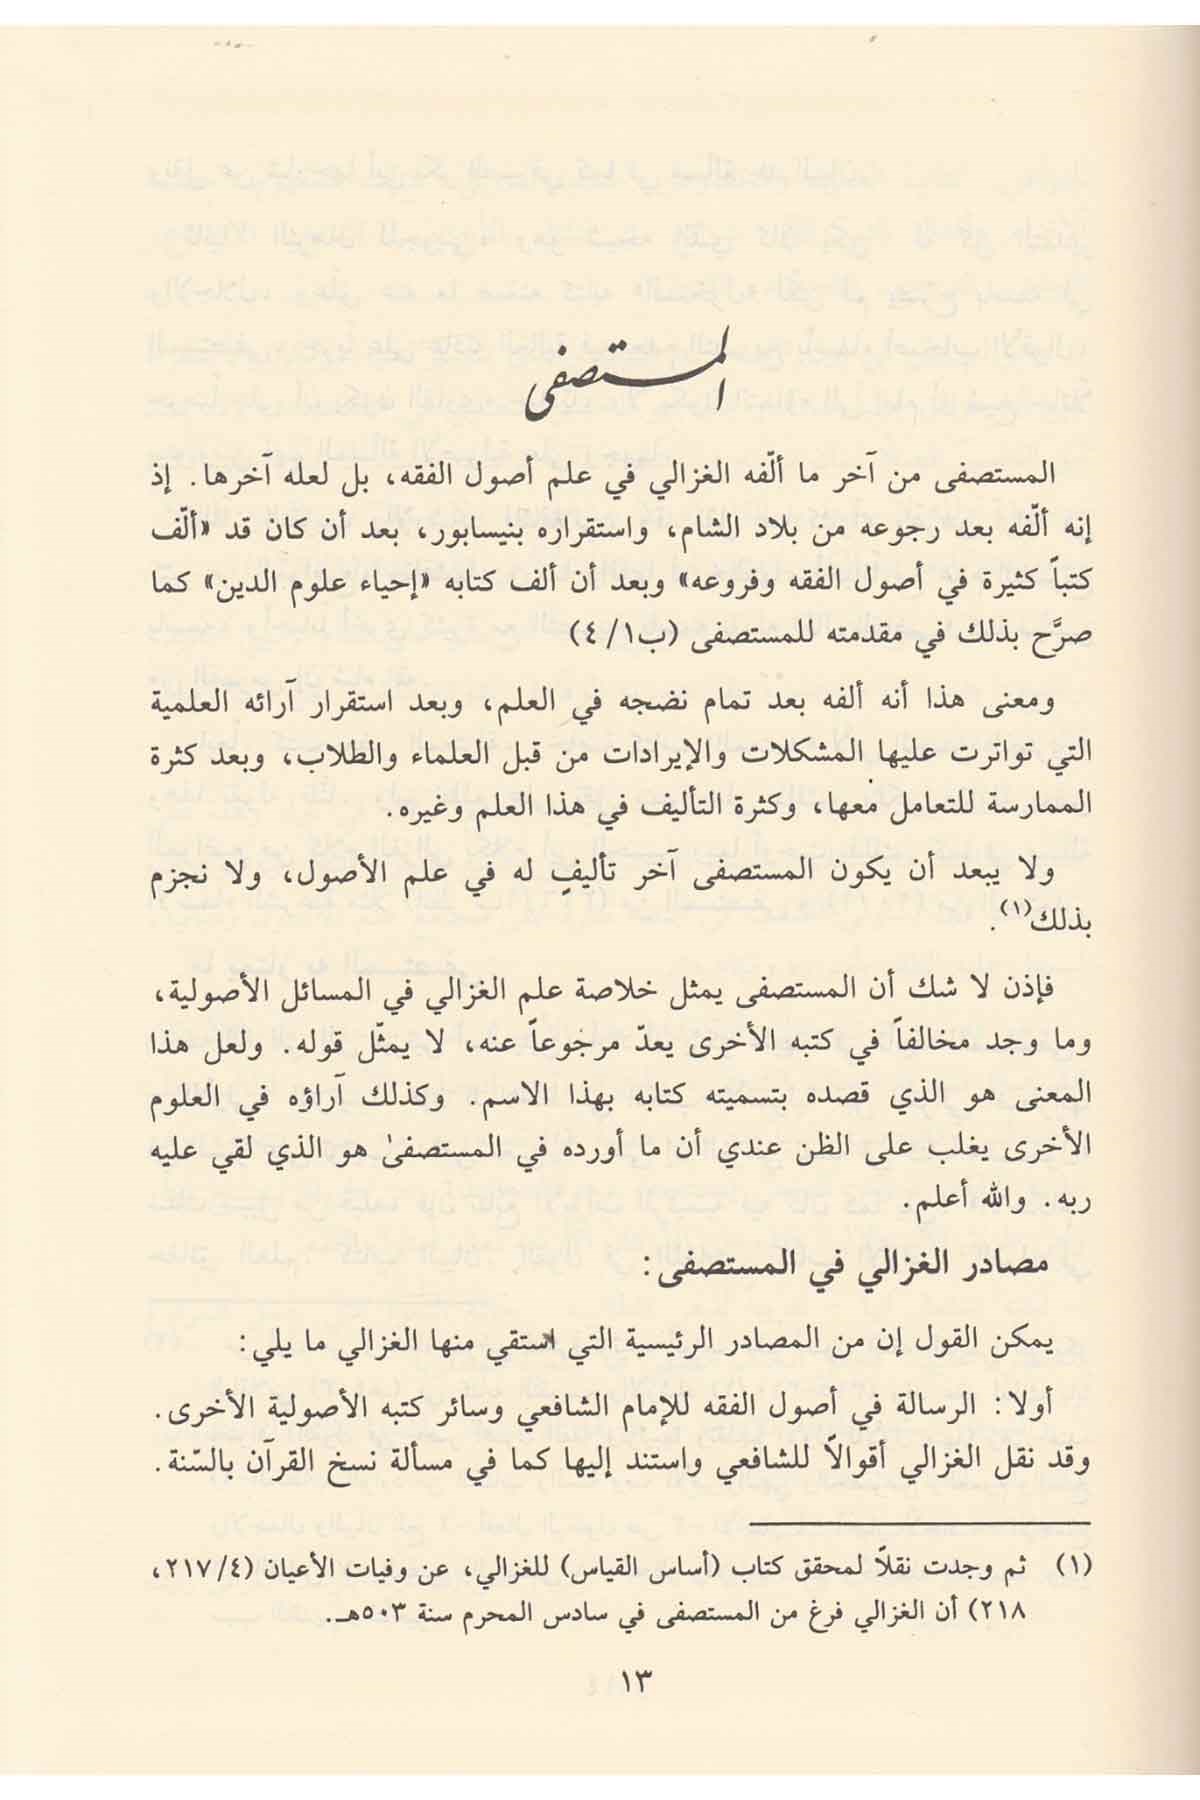 المستصفى
المستصفى من آخر ما ألّفه الغزالي في علم أصول الفقه، بل لعله آخرها. إذ
إنه ألّفه بعد رجوعه من بلاد الشام، واستقراره بنيسابور، بعد أن كان قد «ألّف
كتباً كثيرة في أصول الفقه وفروعه» وبعد أن ألف كتابه «إحياء علوم الدين» كما
صرَّح بذلك في مقدمته للمستصفى (ب١/ ٤)
ومعنى هذا أنه ألفه بعد تمام نضجه في العلم، وبعد استقرار آرائه العلمية
التي تواترت عليها المشكلات والإيرادات من قبل العلماء والطلاب، وبعد كثرة
الممارسة للتعامل معها، وكثرة التأليف في هذا العلم وغيره.
ولا يبعد أن يكون المستصفى آخر تأليفٍ له في علم الأصول، ولا نجزم
بذلك(١).
فإذن لا شك أن المستصفى يمثل خلاصة علم الغزالي في المسائل الأصولية،
وما وجد مخالفاً في كتبه الأخرى يعدّ مرجوعاً عنه، لا يمثّل قوله. ولعل هذا
المعنى هو الذي قصده بتسميته كتابه بهذا الاسم. وكذلك آراؤه في العلوم
الأخرى يغلب على الظن عندي أن ما أورده في المستصفىٰ هو الذي لقي عليه
ربه. والله أعلم.
مصادر الغزالي في المستصفى:
يمكن القول إن من المصادر الرئيسية التي استقي منها الغزالي ما يلي:
أولا: الرسالة في أصول الفقه للإمام الشافعي وسائر كتبه الأصولية الأخرى.
وقد نقل الغزالي أقوالاً للشافعي واستند إليها كما في مسألة نسخ القرآن بالسّنة.
(١) ثم وجدت نقلاً لمحقق كتاب (أساس القياس) للغزالي، عن وفيات الأعيان (٤/ ٢١٧،
٢١٨) أن الغزالي فرغ من المستصفى في سادس المحرم سنة ٥٠٣هـ.
١٣